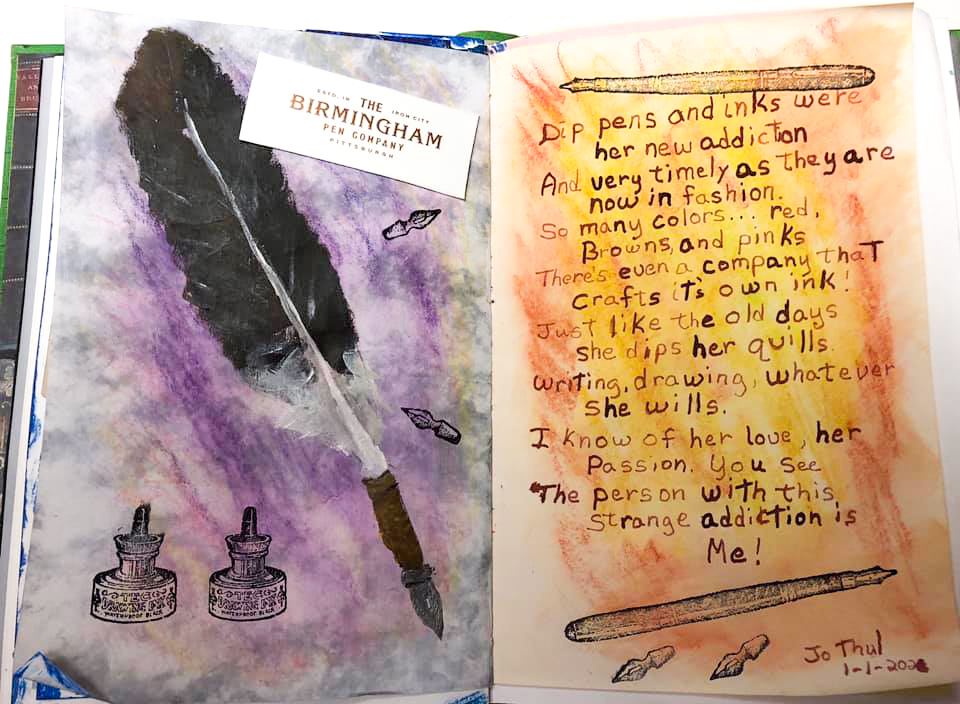 ESTD. IN IRON CITY
THE
BIRMINGHAM
PEN COMPANY
PITTSBURGH
DRAWING INK
WATERPROOF BLACK
DRAWING INK
WATERPROOF BLACK
Dip pens and inks were
her new addiction
And very timely as they are
now in fashion.
So many colors... red,
Browns, and pinks
There's even a company that
crafts it's own ink!
Just like the old days
she dips her quills.
Writing, drawing, whatever
she wills.
I know of her love, her
Passion. You see
The person with this
strange addiction is
Me!
Jo Thul
1-1-202